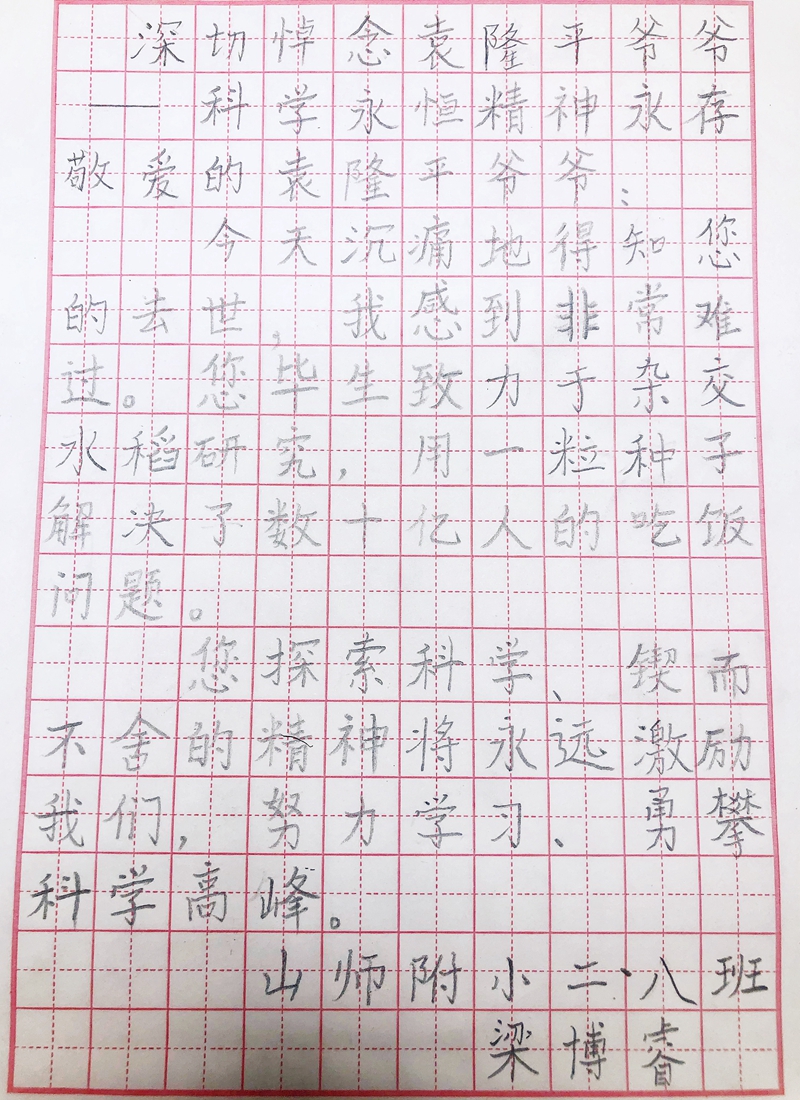 深切悼念袁隆平爷爷
——科学永恒精神永存
敬爱的袁隆平爷爷:
今天沉痛地得知您
的去世,我感到非常难
过。您毕生致力于杂交
水稻研究,用一粒种子
解决了数十亿人的吃饭
问题。
您探索科学、锲而
不舍的精神将永远激励
我们,努力学习、勇攀
科学高峰。
山师附小二·八班
梁博睿